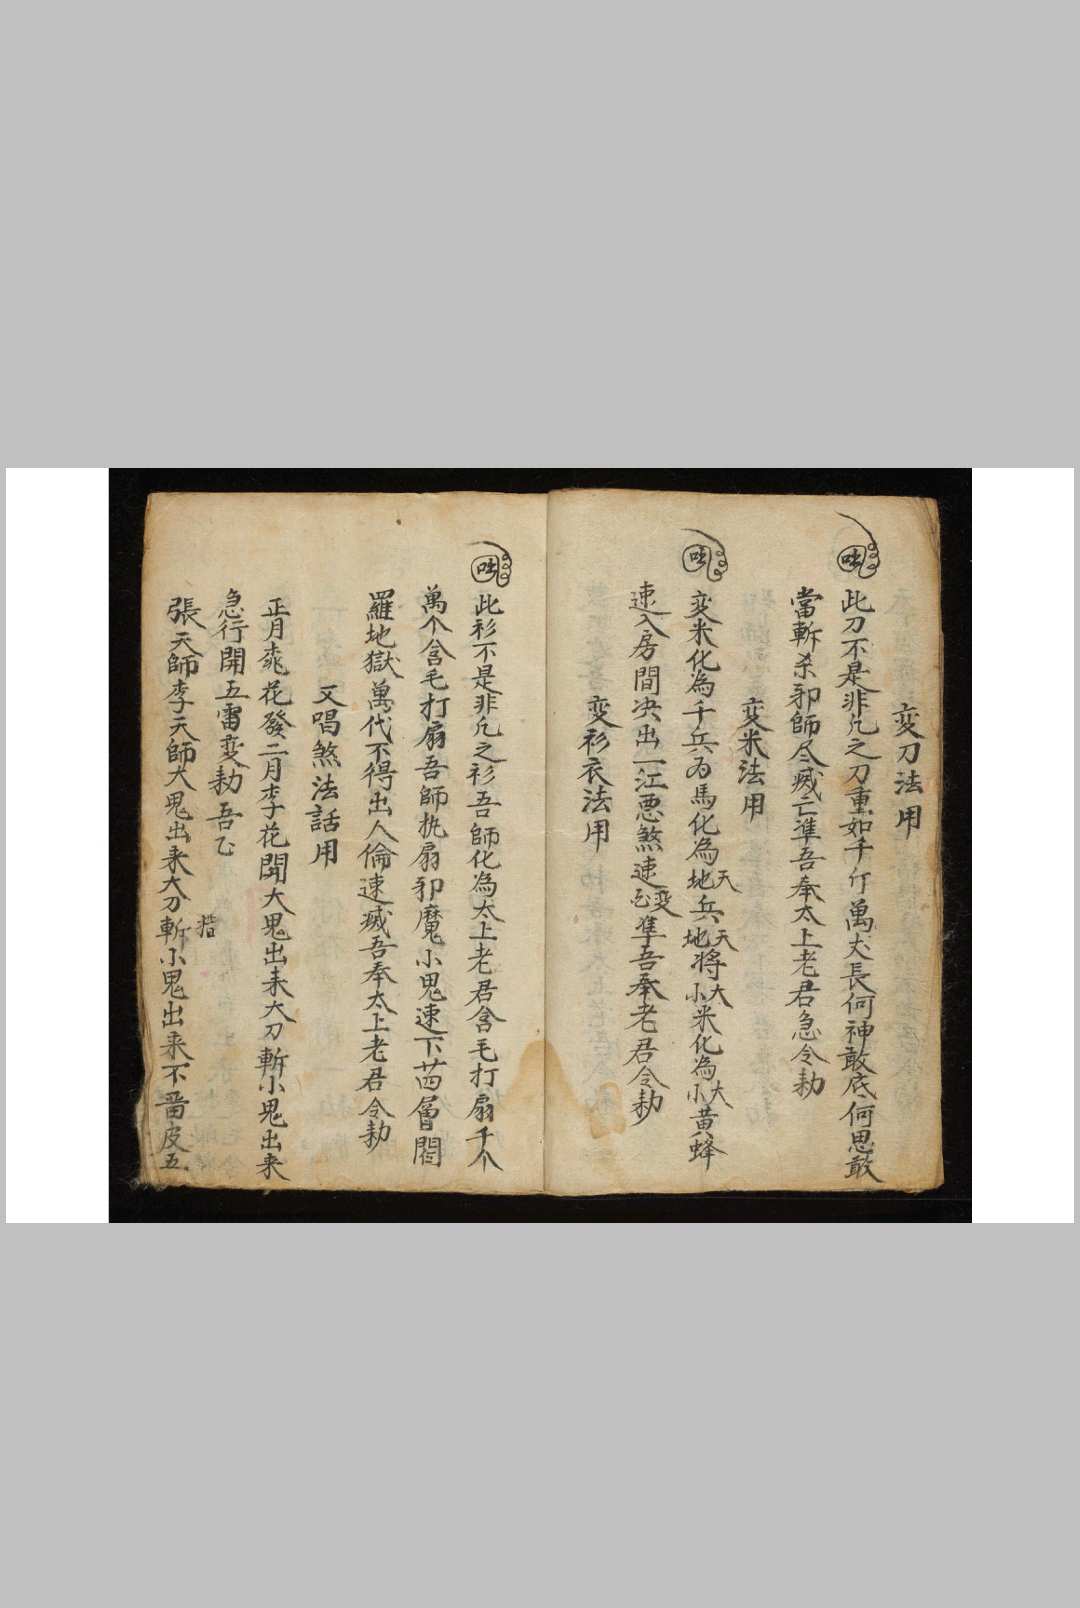 変刀法用
此刀不是非凡之刀重如千斤萬丈長何神敢底何思敢
當斬杀邪師尽滅亡準吾奉太上老君急令勅
変米法用
変米化為千兵万馬化為天地兵天地將大小米化為大小黃蜂
速入房間决出一江悪煞速変準吾奉老君令勅
変衫衣法用
此衫不是非凡之衫吾師化為太上老君含毛打扇千个
萬个含毛打扇吾師执扇邪魔小鬼速下十四層閻
羅地獄萬代不得出人倫速滅吾奉太上老君令勅
又唱煞法話用
正月桃花發二月李花開大鬼出来大刀斬小鬼出来
急行開五雷変勅吾
張天師李天師大鬼出来大刀斬小鬼出来不畱皮五